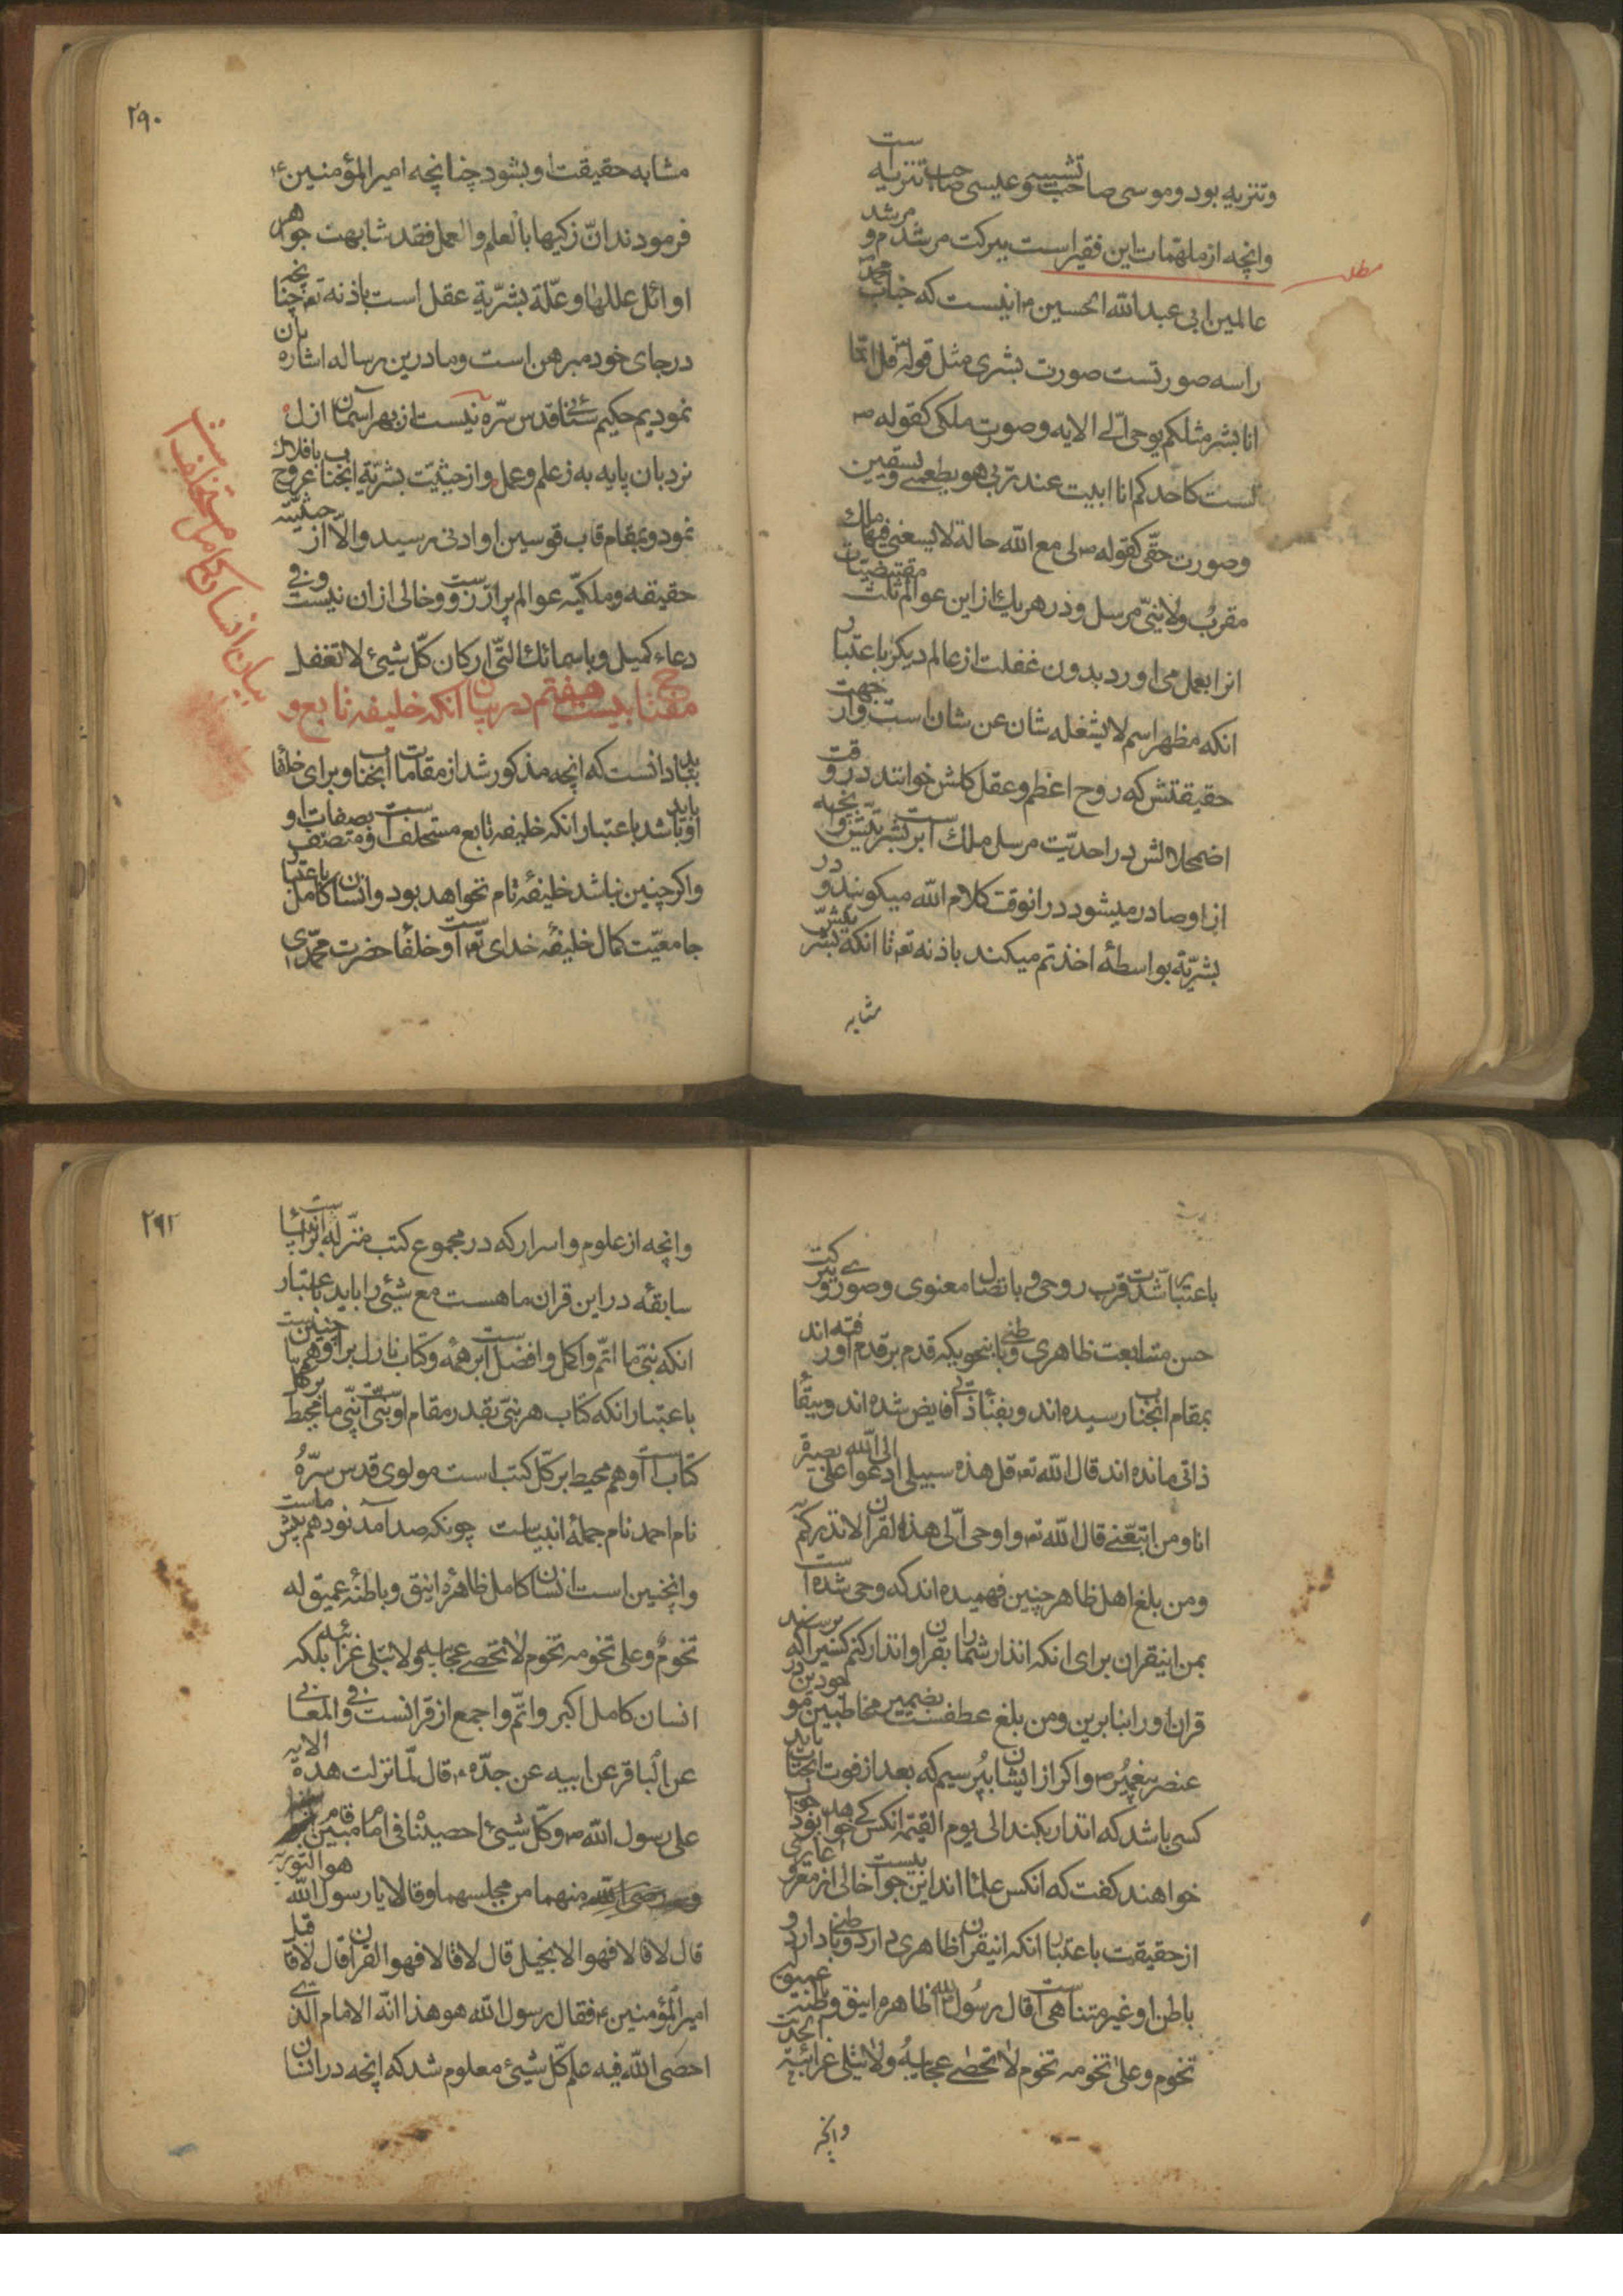 وتنزیه بود و موسی صاحب تشبیه و عیسی صاحب تنزیه است
وانچه از ملهمات این فقیر است ببرکت مرشدم و مرشد
مطلب
عالمین ابی عبدالله الحسین م اینست که جناب محمد
راسه صورتست صورت بشری مثل قوله تم قل انما
انا بشر مثلکم یوحی الی الایه و صورت ملکی کقوله ص
لست کاحدکم انا ابیت عند ربی هو یطعمنی و یسقین
وصورت حقی کقوله ص لی مع الله حالة لا یسعنی فیها ملك
مقرب ولا نبی مرسل و در هریك از این عوالم ثلث مقتضیات
انرا بعمل می اورد بدون غفلت از عالم دیکر باعتبار
انکه مظهر اسم لا یشغله شان عن شان است و از جهت
حقیقتش که روح اعظم و عقل کلش خوانند در وقت
اضمحلالش در احدیت مرسل ملك است بر بشریتش وانچه
از او صادر میشود در انوقت کلام الله میکویند و در
بشریة بواسطهٔ اخذتم میکند باذنه تم تا انکه بشریتش
مشابه
۲۹۰
مشابه حقیقت او بشود چنانچه امیرالمؤمنین ع
فرمودند ان زکیها بالعلم والعمل فقد شابهت جواهر
اوائل عللها و علّة بشریة عقل است باذنه تم چنانچه
درجای خود مبرهن است و ما درین رساله اشاره بان
نمودیم حکیم سنائی قدس سرّه نیست از بهر آسمان ازل
نردبان پایه به ز علم و عمل و از حیثیت بشریة انجناب بافلاك عروج
نمود و بمقام قاب قوسین او ادنی رسید والّا از حیثیت
حقیقه و ملکیّه عوالم پر از اوست و خالی ازان نیست وفی
دعاء کمیل و باسمائك التی ارکان کلّ شیئ لا تغفل
مفتاح بیست هفتم در بیان آنکه خلیفه تابع و
بباید دانست که انچه مذکور شد از مقامات انجناب و برای خلفا
او باید باشد باعتبار انکه خلیفه تابع مستخلف است و متصف بصفات او
واکر چنین نباشد خلیفهٔ تام نخواهد بود وانسان کامل باعتبار
جامعیّت کمال خلیفهٔ خدای تم است و خلفا حضرت محمدی
بیان انسان کامل مستخلف است
باعتبار شدّت قرب روحی و باتصال معنوی وصوری و ببرکت
حسن متابعت ظاهری و باطنی بانحویکه قدم بر قدم او رفته اند
بمقام انجناب رسیده اند و بفنأ ذاتی فایض شده اند و ببقأ
ذاتی مانده اند قال الله تم قل هذه سبیلی ادعوا الی الله علی بصیرة
انا ومن اتبعنی قال الله تم و اوحی الّی هذه القران لانذرکم به
ومن بلغ اهل ظاهر چنین فهمیده اند که وحی شده است
بمن اینقران برای انکه انذار شما را بقران و انذار کنم کسیرا که برسد
قران اورا بنابرین ومن بلغ عطفست بضمیر مخاطبین موجودین در
عنصر پیغمبر ص و اکر از ایشان بپرسیم که بعد از فوت انجناب باید
کسی باشد که انذار بکند الی یوم القیمة انکس کی خواهد بود جواب
خواهند کفت که انکس علمااند این جواب خالی از معرفت و عاری
از حقیقت باعتبار انکه اینقران ظاهری دارد و باطنی دارد و
باطن او غیر متناهی است قال رسول الله ظاهره انیق و باطنه عمیق له
تخوم و علی تخومه تخوم لا تحصی عجایبه ولا تبلی غرائبه الحدیث
وانچه
۲۹۲
وانچه از علوم و اسرار که در مجموع کتب منزله بر انبیاء است
سابقهٔ در این قران ما هست مع شیئی زاید باعتبار
انکه نبّی ما اتم و اکمل و افضل است از همه و کتاب نازل بر او هم چنین است
باعتبار انکه کتاب هر نبّی بقدر مقام او نبّی است نبّی ما محیط بر کل
کتاب او هم محیط بر کل کتب است مولوی قدس سرّهُ
نام احمد نام جملهٔ انبیاست چونکه صد آمد نود هم پیش ماست
وانچنین است انسان کامل ظاهرهٔ انیق و باطنهٔ عمیق له
تخومٌ و علی تخومه تخوم لا تحصی عجایبه ولا تبلی غرائبه بلکه
انسان کامل اکبر و اتم و اجمع از قرانست فی والمعانی
عن الباقر عن ابیه عن جدّه م قال لّما نزلت هذه الایه
علی رسول الله ص و کلّ شیئ احصیناه فی امام مبین قام
منهما من مجلسهما و قالا یا رسول الله هو التوریة
قال لا قالا فهو الانجیل قال لا قالا فهو القران قال لا فاقبل
امیرالمؤمنین م فقال رسول الله هو هذا انّه الامام الذی
احصی الله فیه علم کلّ شیئ معلوم شد که انچه در انسان